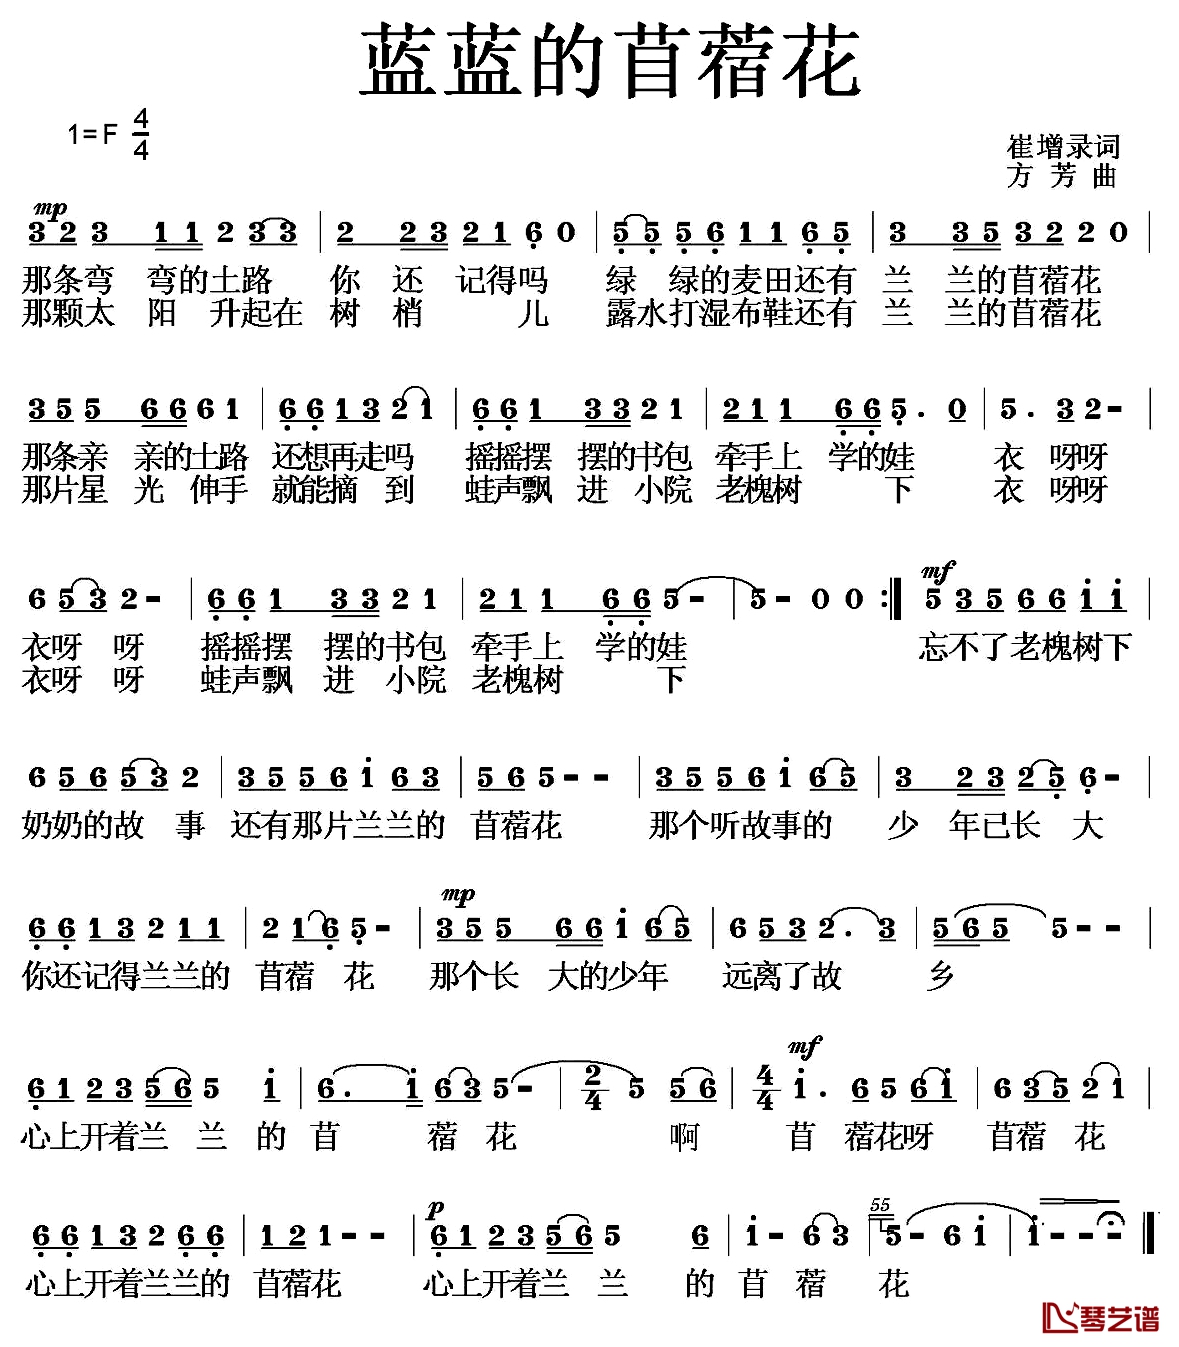 蓝蓝的苜蓿花
1=F 4/4
崔增录词
方 芳 曲
mp
3 2 3 1 1 2 3 3 | 2 2 3 2 1 6 0 | 5 5 5 6 1 1 6 5 | 3 3 5 3 2 2 0 |
那条弯 弯的土路 你 还 记得吗 绿 绿的麦田还有 兰 兰的苜蓿花
那颗太 阳 升起在 树 梢 儿 露水打湿布鞋还有 兰 兰的苜蓿花
3 5 5 6 6 6 1 | 6 6 1 3 2 1 | 6 6 1 3 3 2 1 | 2 1 1 6 6 5 . 0 | 5 . 3 2 - |
那条亲 亲的土路 还想再走吗 摇摇摆 摆的书包 牵手上 学的娃 衣 呀呀
那片星 光 伸手 就能摘 到 蛙声飘 进 小院 老槐树 下 衣 呀呀
mf
6 5 3 2 - | 6 6 1 3 3 2 1 | 2 1 1 6 6 5 - | 5 - 0 0 :| 5 3 5 6 6 i i |
衣呀 呀 摇摇摆 摆的书包 牵手上 学的娃 忘不了老槐树下
衣呀 呀 蛙声飘 进 小院 老槐树 下
6 5 6 5 3 2 | 3 5 5 6 i 6 3 | 5 6 5 - - | 3 5 5 6 i 6 5 | 3 2 3 2 5 6 - |
奶奶的故 事 还有那片兰兰的 苜蓿花 那个听故事的 少 年已长 大
mp
6 6 1 3 2 1 1 | 2 1 6 5 - | 3 5 5 6 6 i 6 5 | 6 5 3 2 . 3 | 5 6 5 5 - |
你还记得兰兰的 苜蓿 花 那个长 大的少年 远离了故 乡
mf
6 1 2 3 5 6 5 i | 6 . i 6 3 5 - | 2/4 5 5 6 | 4/4 i . 6 5 6 i | 6 3 5 2 1 |
心上开着兰 兰 的 苜 蓿 花 啊 苜 蓿花呀 苜蓿 花
p 55
6 6 1 3 2 6 6 | 1 2 1 - - | 6 1 2 3 5 6 5 6 | i - 6 3 | 5 - 6 i | i - - - ‖
心上开着兰兰的 苜蓿花 心上开着兰 兰 的 苜 蓿 花
琴艺谱